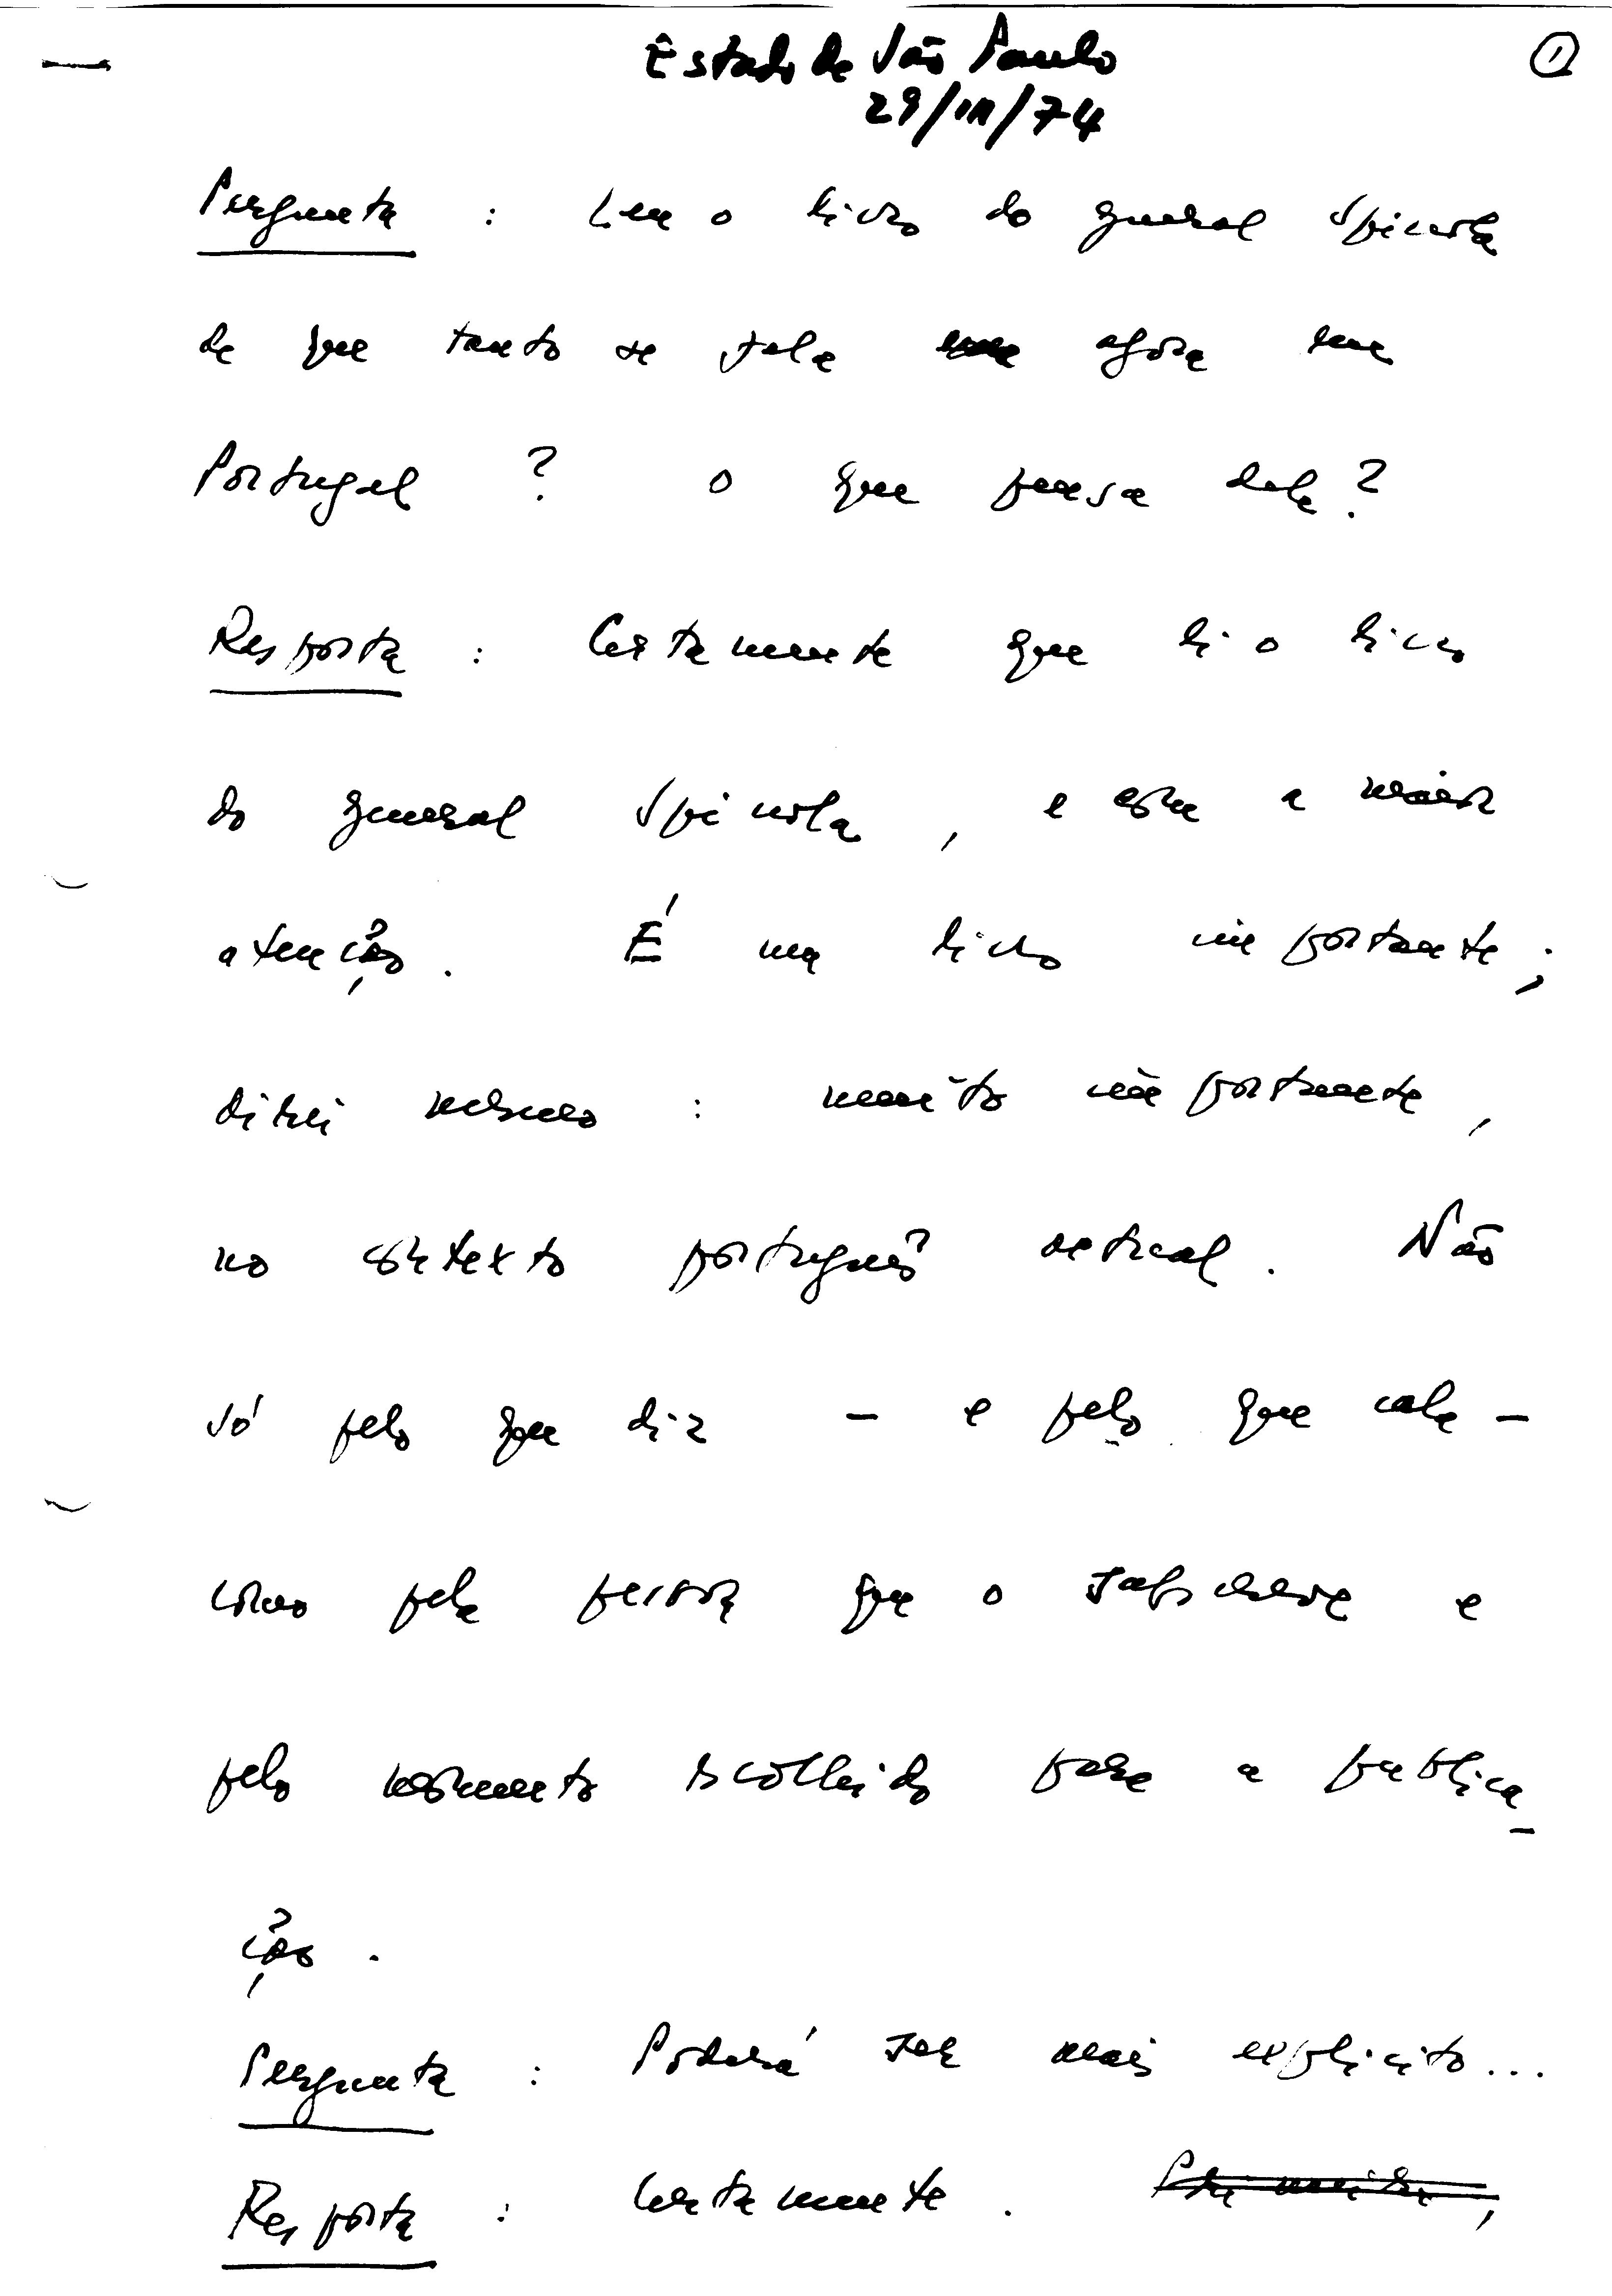 Estado de São Paulo
29/III/74
1
Pergunta : Leu o livro do general Spinola
de que tanto se fala agora em
Portugal ? O que pensa dele ?
Resposta : Certamente que li o livro
do general Spinola , e com a maior
atenção . É um livro importante ;
direi mesmo : muito importante ,
no contexto português actual . Não
só pelo que diz - e pelo que cala -
como pela pessoa que o subscreve e
pelo momento escolhido para a publica-
ção .
Pergunta : Poderá ser mais explicito...
Resposta : Certamente . Primeiro ,